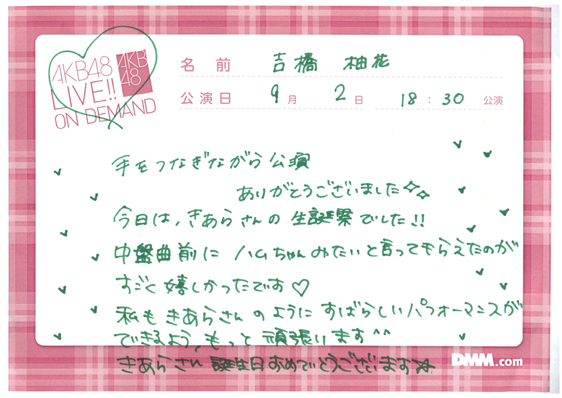 AKB48
LIVE!!
ON DEMAND
AKB
48
名前 吉橋 柚花
公演日 9月 2日 18:30 公演
手をつなぎながら公演
ありがとうございました
今日は、きあらさんの生誕祭でした!!
中盤曲前に ハムちゃんみたいと言ってもらえたのが
すごく嬉しかったです♡
私もきあらさんのようにすばらしいパフォーマンスが
できるよう、もっと頑張います^^
きあらさん誕生日おめでとうございます☆
DMM.com